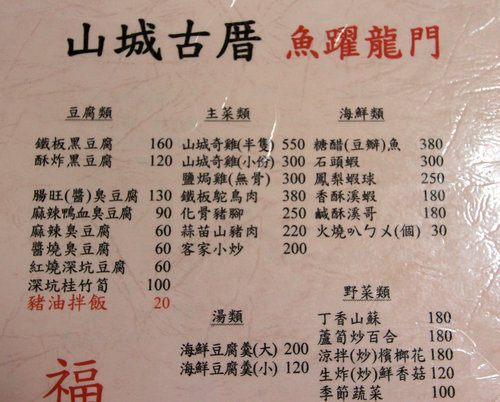 山城古厝 魚躍龍門
豆腐類
鐵板黑豆腐 160
酥炸黑豆腐 120
腸旺(醬)臭豆腐 130
麻辣鴨血臭豆腐 90
麻辣臭豆腐 60
醬燒臭豆腐 60
紅燒深坑豆腐 60
深坑桂竹筍 100
豬油拌飯 20
主菜類
山城奇雞(半隻) 550
山城奇雞(小份) 300
鹽焗雞(無骨) 300
鐵板鴕鳥肉 380
化骨豬腳 250
蒜苗山豬肉 220
客家小炒 200
湯類
海鮮豆腐羹(大) 200
海鮮豆腐羹(小) 120
海鮮類
糖醋(豆瓣)魚 380
石頭蝦 300
鳳梨蝦球 250
香酥溪蝦 180
鹹酥溪哥 180
火燒ㄅㄨ(個) 30
野菜類
丁香山蘇 180
蘆筍炒百合 180
涼拌(炒)檳榔花 180
生炸(炒)鮮香菇 120
季節蔬菜 100
福